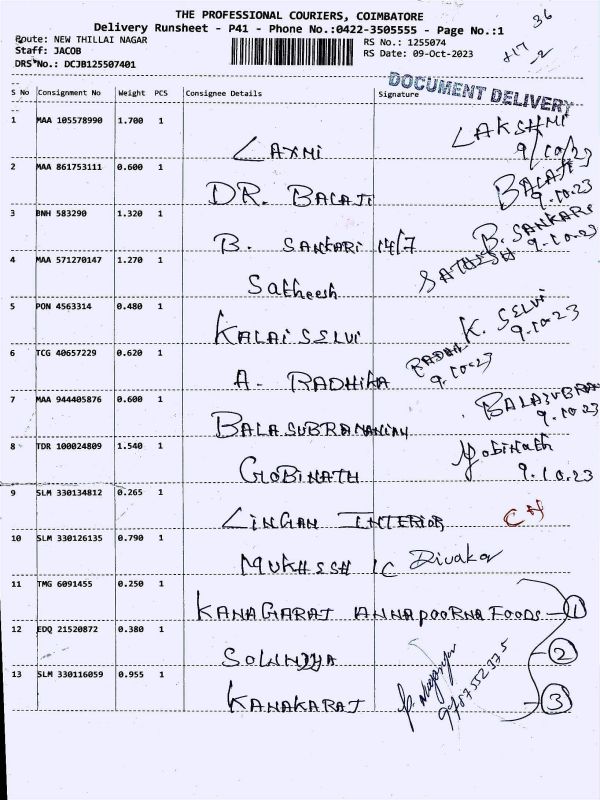 THE PROFESSIONAL COURIERS, COIMBATORE
Delivery Runsheet - P41 - Phone No.:0422-3505555 - Page No.:1
36
Route: NEW THILLAI NAGAR
RS No.: 1255074
Staff: JACOB
RS Date: 09-Oct-2023
DRS No.: DCJB125507401
DOCUMENT DELIVERY
S No Consignment No Weight PCS Consignee Details Signature
1 MAA 105578990 1.700 1 LAXMI LAKSHMI
9/10/23
2 MAA 861753111 0.600 1 DR. BALAJI BALAJI
9.10.23
3 BNH 583290 1.320 1 B. SANKARI 14/7 B. SANKARI
9.10.23
4 MAA 571270147 1.270 1 Satheesh SATHISH
5 PON 4563314 0.480 1 KALAI SELVI K. SELVI
9.10.23
6 TCG 40657229 0.620 1 A. RADHIKA
9.10.23
7 MAA 944405876 0.600 1 BALASUBRAMANIAN BALASUBRAM
9.10.23
8 TDR 100024809 1.540 1 GOBINATH Gobinath
9.10.23
9 SLM 330134812 0.265 1 LINGAN INTERIOR
10 SLM 330126135 0.790 1 Divakar
11 TMG 6091455 0.250 1 KANAGARAJ ANNAPOORNA FOODS 1
12 EDQ 21520872 0.380 1 2
13 SLM 330116059 0.955 1 KANAKARAJ 3